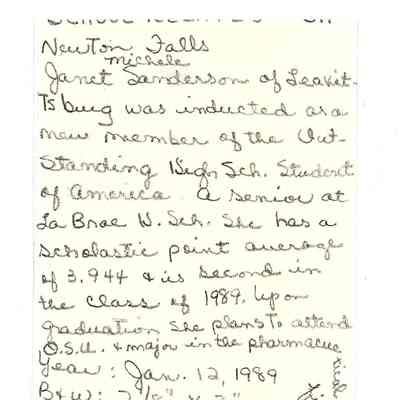 Newton Falls
Michele
Janet Sanderson of Leavit-
Tsburg was inducted as a
new member of the Out-
Standing High Sch. Student
of America. A senior at
La Brae H. Sch. She has a
scholastic point average
of 3.944 & is second in
the class of 1989. Upon
graduation she plans To attend
O.S.U. & major in the pharmacue
tical
Year: Jan. 12, 1989
B&W: